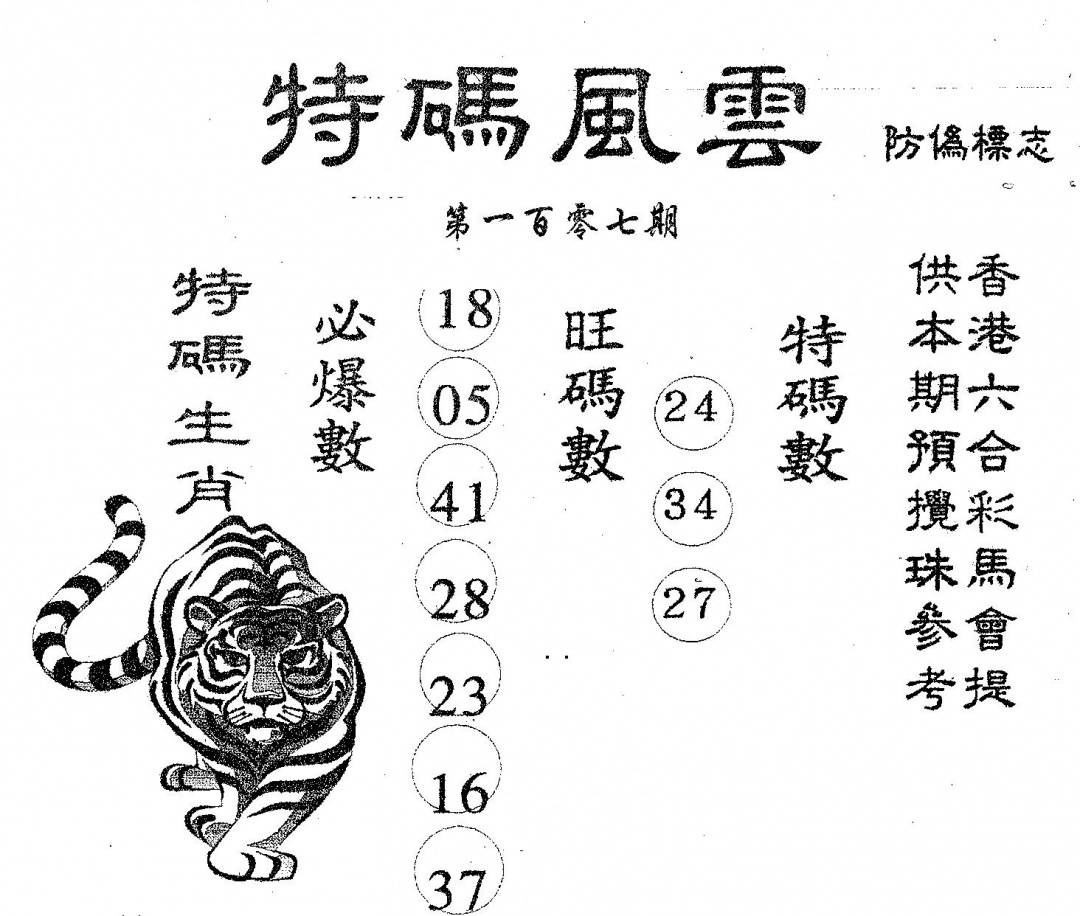 特碼風雲
防僞標志
第一百零七期
香港六合彩馬會提
供本期預攪珠參考
特碼數
24
34
27
旺碼數
18
05
41
28
23
16
37
必爆數
特碼生肖